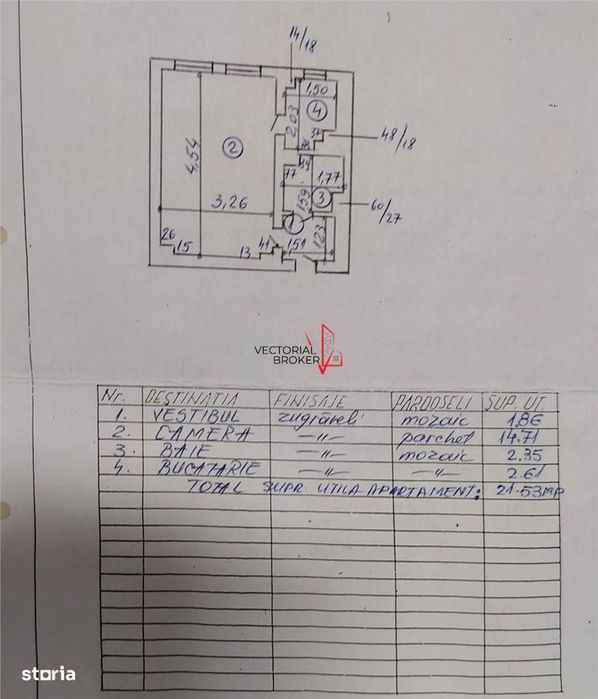 14/18
1,50
4
2,03
37
48/18
4,54
2
77
1,77
3
60/27
3,26
1,59
1
26
15
13
41
151
123
VECTORIAL
BROKER
Nr. DESTINATIA FINISAJE PARDOSELI SUP. UT.
1. VESTIBUL zugrăveli mozaic 1,86
2. CAMERA —"— parchet 14.71
3. BAIE —"— mozaic 2.35
4. BUCATARIE —"— —"— 2.61
TOTAL SUPR UTILA APARTAMENT: 21.53MP
storia